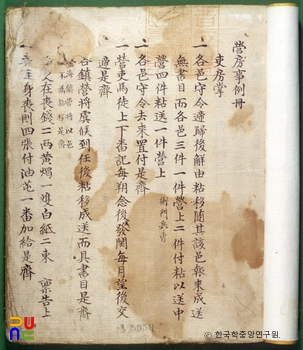 營房事例冊
吏房掌
一 各邑守令遞歸後解由粘移隨其該邑報來成送
無書目而各邑三件一件營上二件付粘以送中
營四件粘送一件營上
一 各邑守令去來置付是齊
一 營吏馬徒上下番記每朔念後發關每月望後交
適是齊
各鎭營將虞候到任後粘移成送而具書目是齊
又在喪錢二兩黃燭一雙白紙二束 稟告上
身喪則四張付油芚一番加給是齊
5959
© 한국학중앙연구원